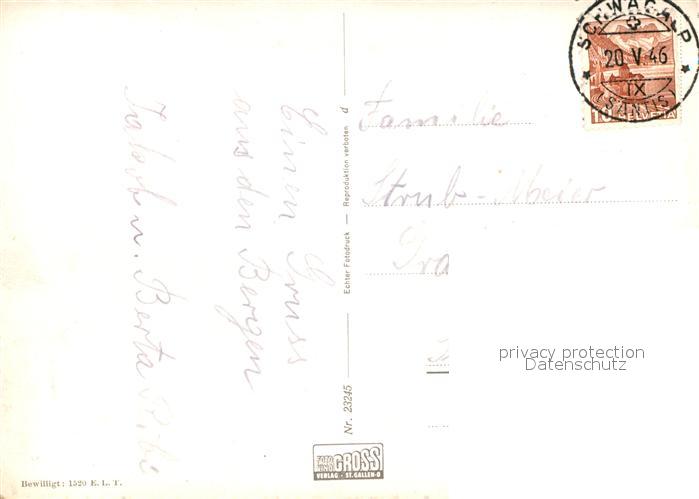 SCHWÄGALP
20 V. 46
IX
(SÄNTIS)
10 HELVETIA
Familie
Strub-Meier
Einen Gruss
aus den Bergen
Jakob u. Berta
Echter Fotodruck — Reproduktion verboten d
Nr. 23245
privacy protection
Datenschutz
FOTO GROSS
VERLAG - ST. GALLEN-O
Bewilligt: 1520 E. L. T.